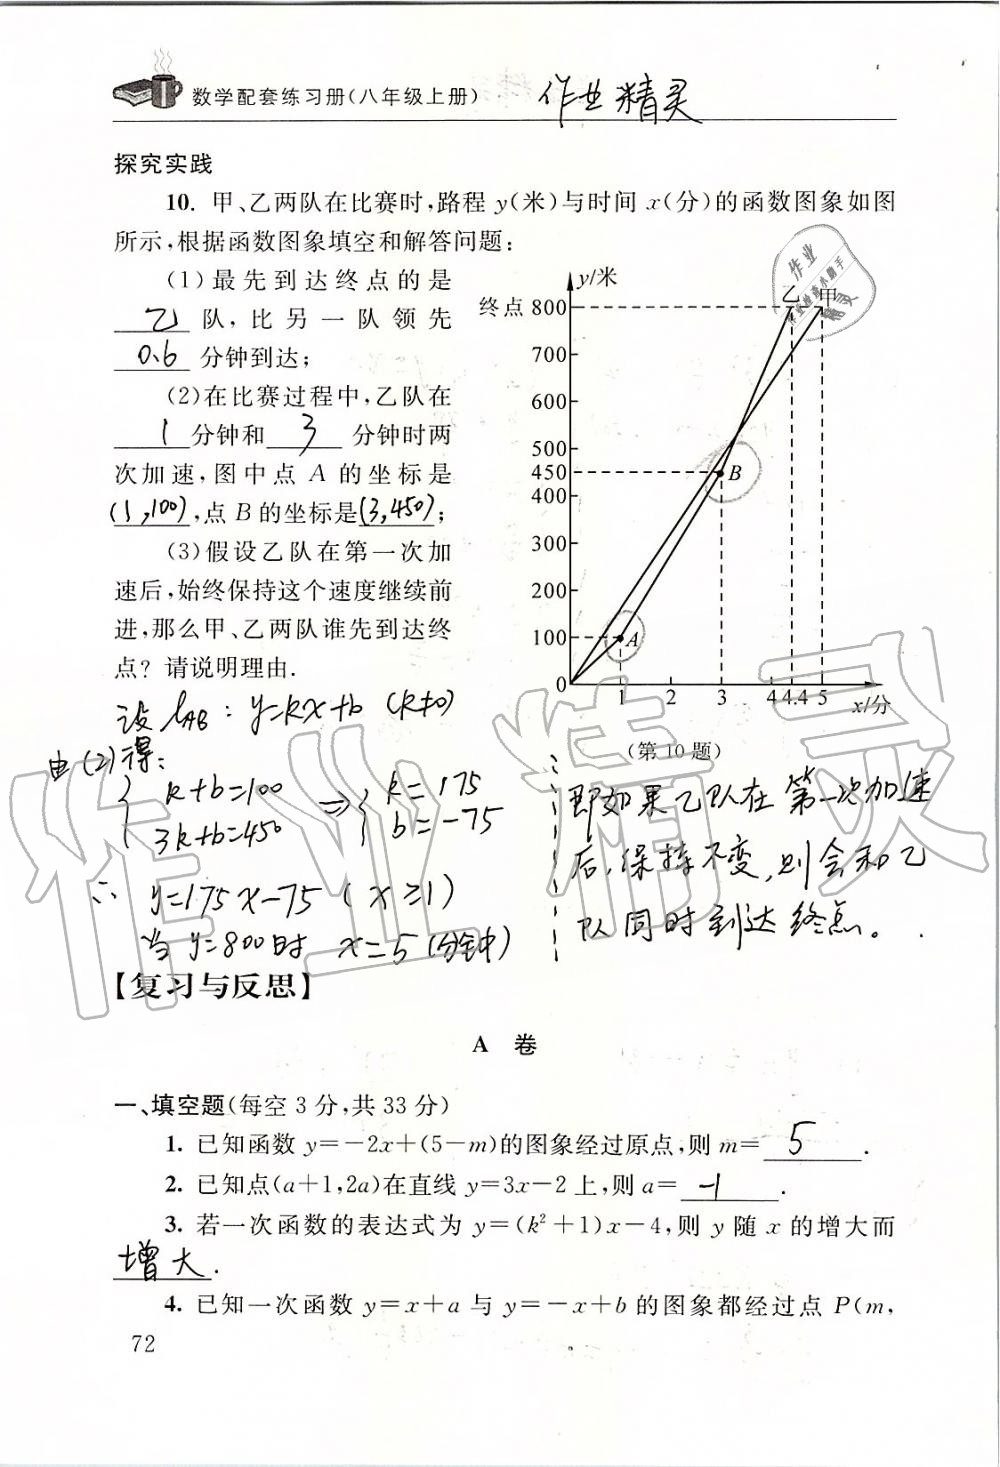 数学配套练习册(八年级上册)
作业精灵
探究实践
10. 甲、乙两队在比赛时,路程 y(米)与时间 x(分)的函数图象如图
所示,根据函数图象填空和解答问题:
(1)最先到达终点的是
乙 队,比另一队领先
0.6 分钟到达;
(2)在比赛过程中,乙队在
1 分钟和 3 分钟时两
次加速,图中点 A 的坐标是
(1,100),点 B 的坐标是(3,450);
(3)假设乙队在第一次加
速后,始终保持这个速度继续前
进,那么甲、乙两队谁先到达终
点? 请说明理由.
y/米
乙 甲
终点 800
700
600
500
450
400
300
200
100
0
B
A
1 2 3 4 4.4 5
x/分
(第 10 题)
设 lAB : y=kx+b (k≠0)
由(2)得:
k+b=100
3k+b=450
⇒
k=175
b=-75
∴ y=175x-75 (x≥1)
当 y=800时 x=5(分钟)
即如果乙队在第一次加速
后,保持不变,则会和乙
队同时到达终点。
【复习与反思】
A 卷
一、填空题(每空 3 分,共 33 分)
1. 已知函数 y=-2x+(5-m)的图象经过原点,则 m= 5 .
2. 已知点(a+1,2a)在直线 y=3x-2 上,则 a= -1 .
3. 若一次函数的表达式为 y=(k²+1)x-4,则 y 随 x 的增大而
增大.
4. 已知一次函数 y=x+a 与 y=-x+b 的图象都经过点 P(m,
72
作业精灵